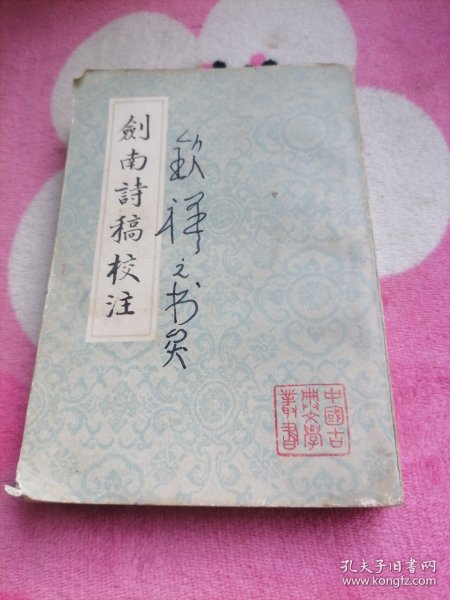 劍南詩稿校注
中國古
典文學
叢書
孔夫子旧书网
www.kongfz.com